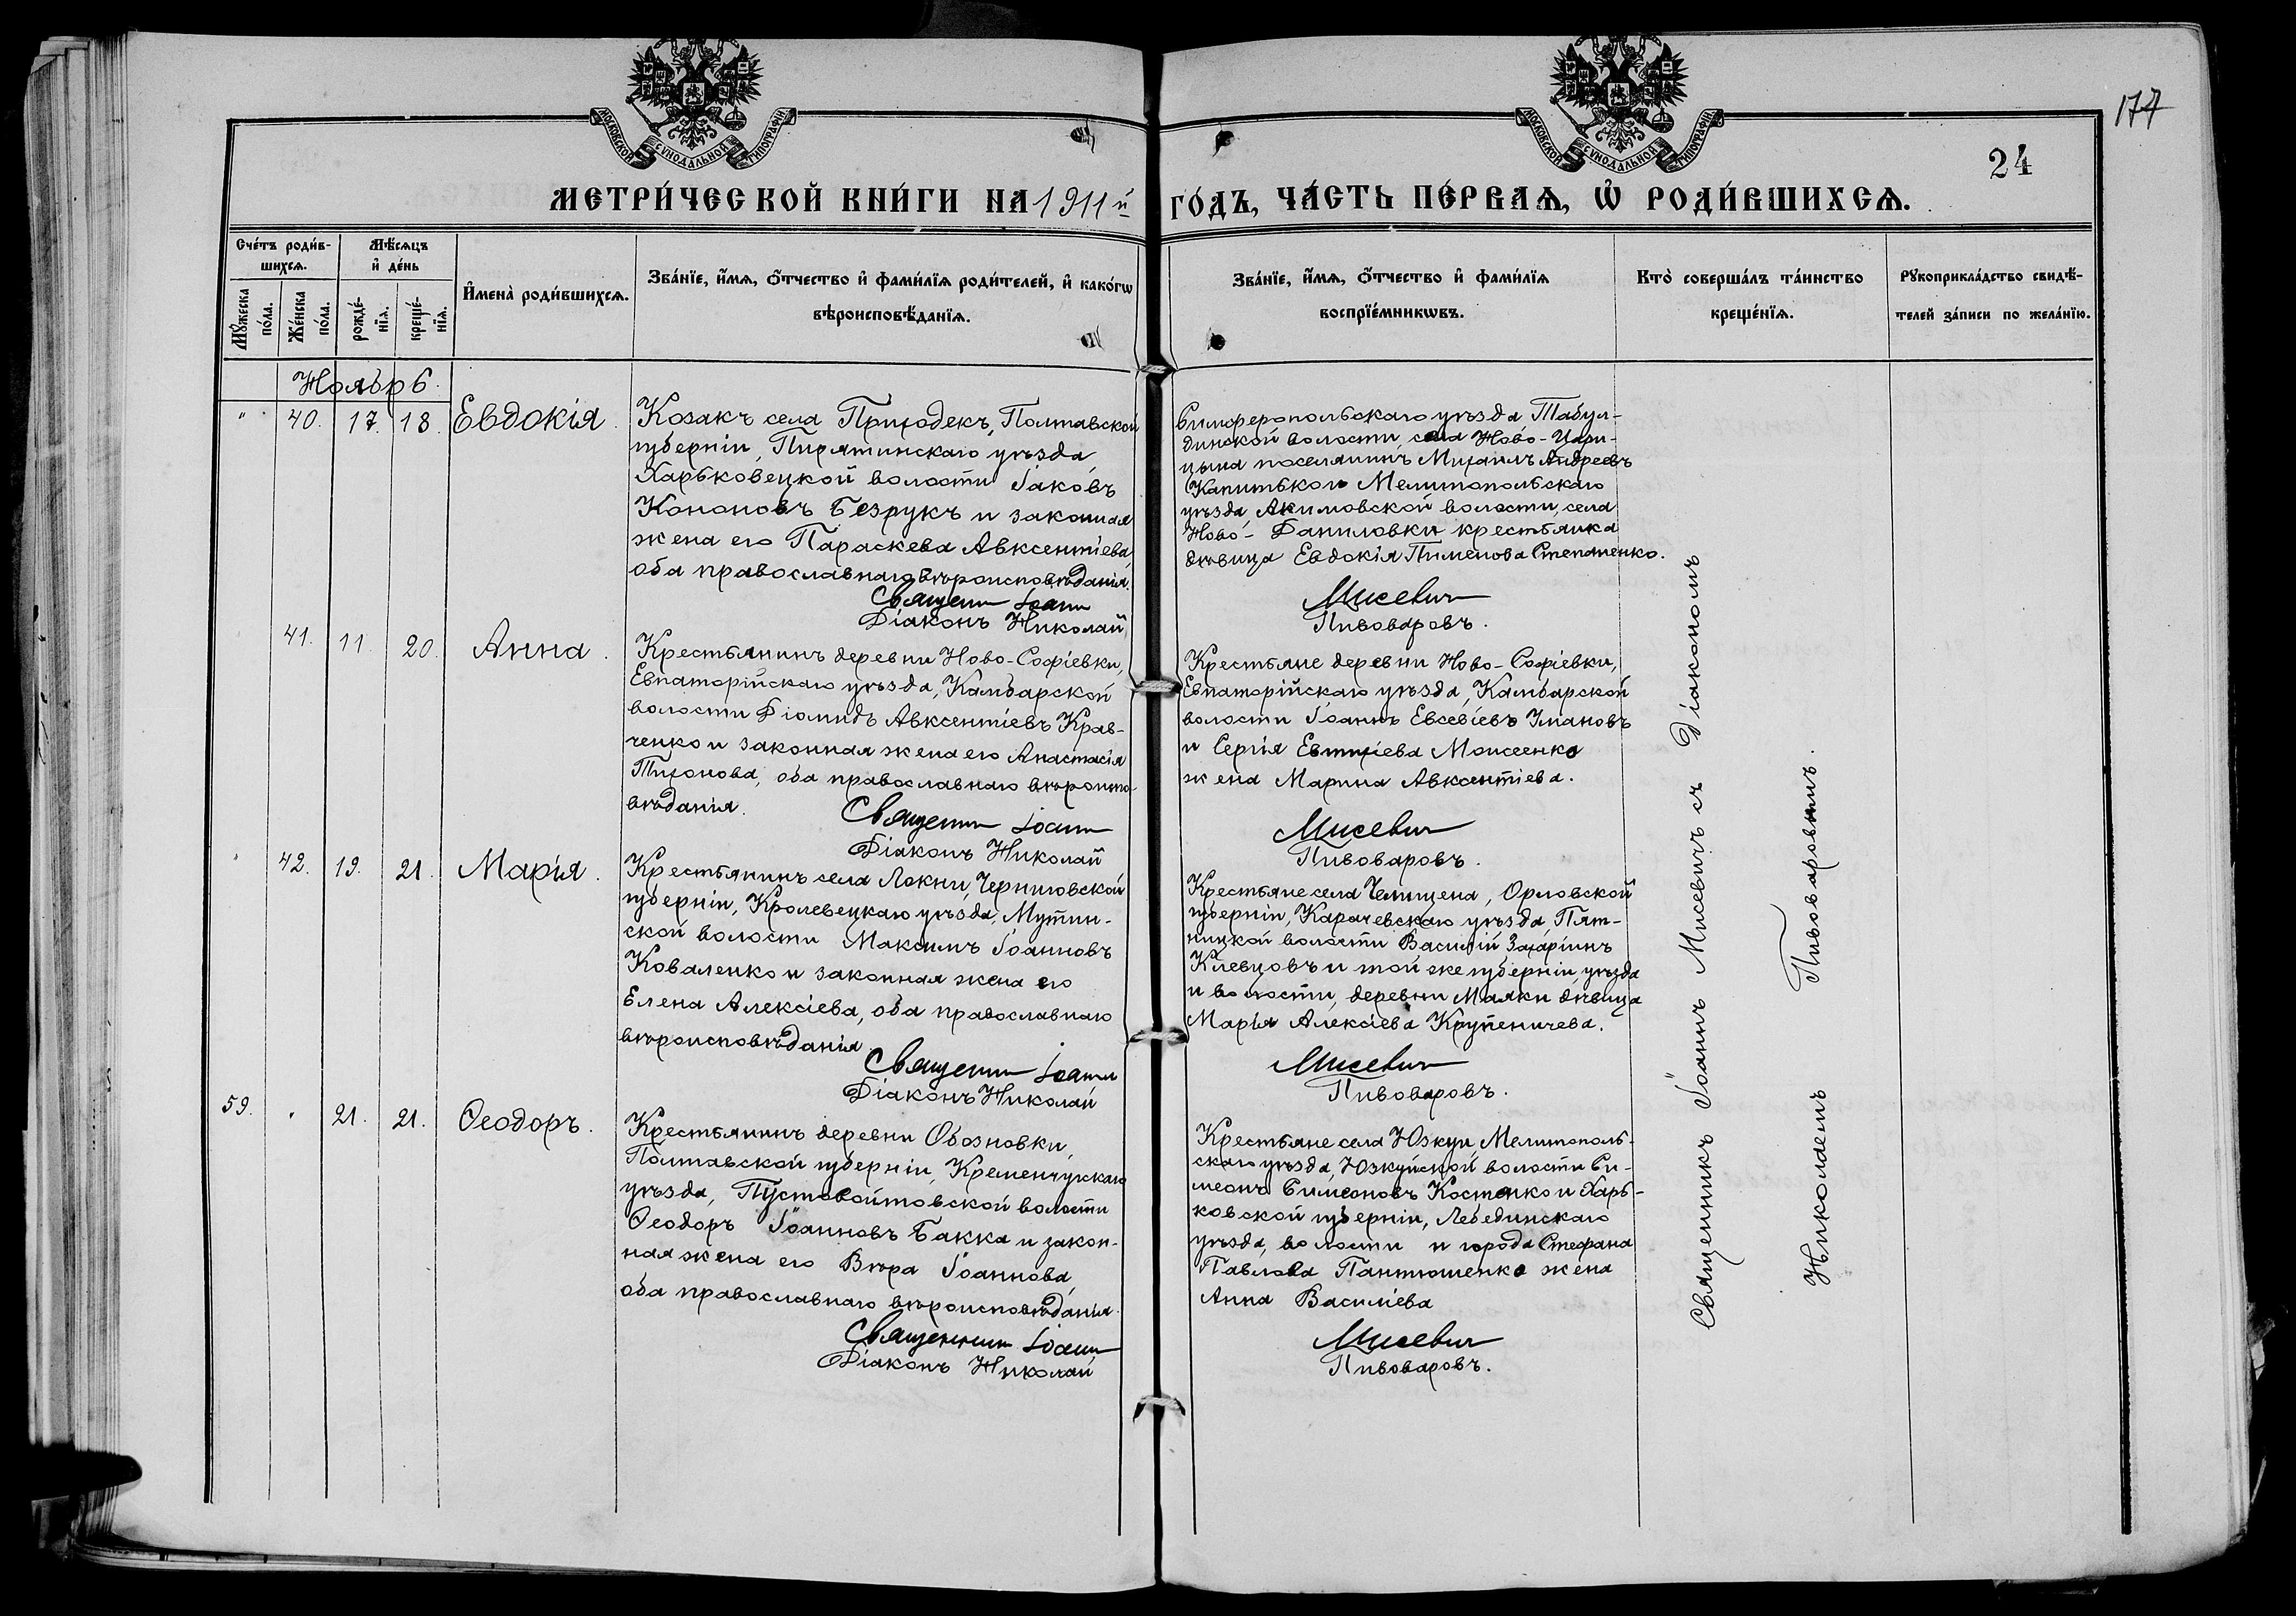 МОСКОВСКОЙ СѴНОДАЛЬНОЙ ТИПОГРАФІИ
МОСКОВСКОЙ СѴНОДАЛЬНОЙ ТИПОГРАФІИ
177
24
МЕТРИ́ЧЕСКОЙ КНИ́ГИ НА 1911й ГО́ДЪ, ЧА́СТЬ ПЕ́РВАѦ, Ѡ҆ РОДИ́ВШИХСѦ.
Сче́тъ роди́в-
шихсѧ.
Мѣ́сѧцъ
и҆ де́нь
Мꙋ́жеска
по́ла.
Же́нска
по́ла.
рожде́-
нїѧ.
креще́-
нїѧ.
И҆мена̀ роди́вшихсѧ.
Зва́нїе, и҆́мѧ, ѻ҆́тчество и҆ фами́лїѧ роди́телей, и҆ како́гѡ
вѣроисповѣ́данїѧ.
Зва́нїе, и҆́мѧ, ѻ҆́тчество и҆ фами́лїѧ
воспрїе́мникѡвъ.
Кто̀ соверша́лъ та́инство
креще́нїѧ.
Рꙋкоприкла́дство свидѣ́-
телей за́писи по жела́нїю.
Ноябрь.
" 40. 17. 18. Евдокія.
Козакъ села Приходекъ, Полтавской
губерніи, Пирятинскаго уѣзда,
Харьковецкой волости Іаковъ
Кононовъ Безрукъ и законная
жена его Параскева Авксентіева,
оба православнаго вѣроисповѣданія.
Священн Іоанн
Діаконъ Николай
Симферопольскаго уѣзда, Табул-
динской волости, села Ново-Цари-
цына поселянинъ Михаилъ Андреевъ
Мелитопольскаго
уѣзда, Акимовской волости, села
Ново-Даниловки крестьянка
дѣвица Евдокія Пименова Степаненко.
Мисевич
Пивоваровъ.
41. 11. 20. Анна.
Крестьянинъ деревни Ново-Софіевки,
Евпаторійскаго уѣзда, Камбарской
волости Діомидъ Авксентіевъ Крав-
ченко и законная жена его Анастасія
Тихонова, оба православнаго вѣроиспо-
вѣданія.
Священн Іоанн
Діаконъ Николай
Крестьяне деревни Ново-Софіевки,
Евпаторійскаго уѣзда, Камбарской
волости Іоаннъ Евсевіевъ
и Сергія Евтихіева Моисеенко
жена Марина Авксентіева.
Мисевич
Пивоваровъ.
42. 19. 21. Марія.
Крестьянинъ села Локни, Черниговской
губерніи, Кролевецкаго уѣзда, Мутин-
ской волости Максимъ Іоанновъ
Коваленко и законная жена его
Елена Алексіева, оба православнаго
вѣроисповѣданія
Священн Іоанн
Діаконъ Николай
Крестьяне села Орловской
губерніи, Карачевскаго уѣзда, Пят-
ницкой волости Василій Захаріинъ
Клевцовъ и той же губерніи, уѣзда
и волости, деревни Маяки дѣвица
Марія Алексіева Крупеничева.
Мисевич
Пивоваровъ.
59. " 21. 21. Ѳеодоръ.
Крестьянинъ деревни Обозновки,
Полтавской губерніи, Кременчугскаго
уѣзда, Пустовойтовской волости
Ѳеодоръ Іоанновъ Бакка и закон-
ная жена его Вѣра Іоаннова,
оба православнаго вѣроисповѣданія.
Священник Іоанн
Діаконъ Николай
Крестьяне села Юзкуи, Мелитополь-
скаго уѣзда, Юзкуйской волости Си-
меонъ Симеоновъ Костенко и Харь-
ковской губерніи, Лебединскаго
уѣзда, волости и города Стефана
Павлова Пантюшенко жена
Анна Василіева
Мисевич
Пивоваровъ.
Священникъ Іоаннъ Мисевичъ съ Діакономъ
Николаемъ Пивоваровымъ.